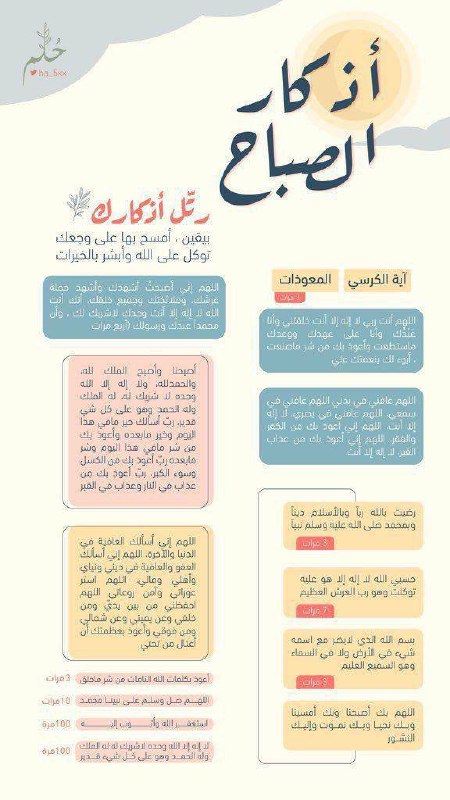 حُلم
أذكار
الصباح
رتّل أذكارك
بيقين ، أمسح بها على وجعك
توكل على الله وأبشر بالخيرات
آية الكرسي
المعوذات
3 مرات
اللهم أنت ربي لا إله إلا أنت خلقتني وأنا
عبدك وأنا على عهدك ووعدك
ماستطعت وأعوذ بك من شر ماصنعت
، أبوء لك بنعمتك علي
اللهم عافني في بدني اللهم عافني في
سمعي، اللهم عافني في بصري، لا إله
إلا أنت. اللهم إني أعوذ بك من الكفر
والفقر، اللهم إني أعوذ بك من عذاب
القبر، لا إله إلا أنت.
رضيت بالله رباً وبالأسلام ديناً
وبمحمد صلى الله عليه وسلم نبياً
3 مرات
حسبي الله لا إله إلا هو عليه
توكلت وهو رب العرش العظيم
7 مرات
بسم الله الذي لايضر مع اسمه
شيء في الأرض ولا في السماء
وهو السميع العليم
3 مرات
اللهم بك أصبحنا وبك أمسينا
وبك نحيا وبك نموت وإليك
النشور
اللهم إني أصبحتُ أشهدك وأشهد حملة
عرشك، وملائكتك وجميع خلقك، أنك أنت
الله لا إله إلا أنت وحدك لاشريك لك ، وأن
محمداً عبدك ورسولك (أربع مرات
أصبحنا وأصبح الملك لله،
والحمدلله، ولا إله إلا الله
وحده لا شريك له، له الملك
وله الحمد وهو على كل شي
قدير، ربّ أسألك خير مافي هذا
اليوم وخير مابعده وأعوذ بك
من شر مافي هذا اليوم وشر
مابعده ربّ أعوذ بك من الكسل
وسوء الكبر، ربّ أعوذ بك من
عذاب في النار وعذاب في القبر
اللهم إني أسألك العافية في
الدنيا والآخرة، اللهم إني أسألك
العفو والعافية في ديني ودنياي
وأهلي ومالي، اللهم استر
عوراتي وآمن روعاتي اللهم
احفظني من بين يديّ ومن
خلفي وعن يميني وعن شمالي
ومن فوقي وأعوذ بعظمتك أن
أغتال من تحتي
أعوذ بكلمات الله التامات من شر ماخلق 3 مرات
اللهم صل وسلم على نبينا محمد 10 مرات
استغفر الله وأتوب إليه 100 مرة
لا إله إلا الله وحده لاشريك له له الملك
وله الحمد وهو على كل شيء قدير 100 مرة